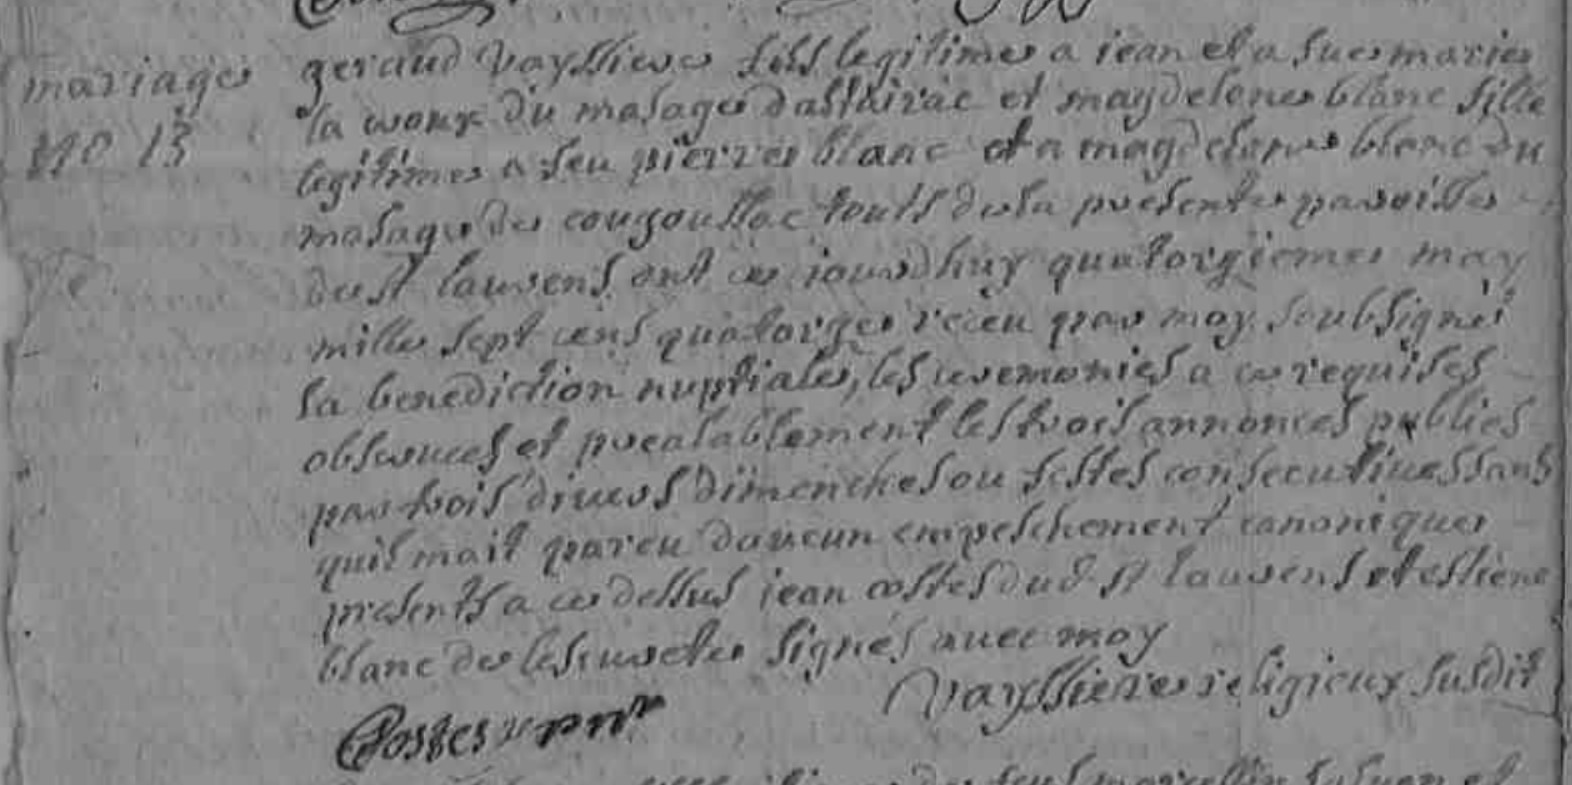 mariage
no 13
geraud Vayssiere fils legitime a jean et a feue marie
la woux du masage dastairac et magdelene blanc fille
legitime a feu pierre blanc et a magdelene blanc du
masage de cougoussac touts de la presente paroisse
de st laurens ont ce jourdhuy quatorzieme may
mille sept cens quatorze receu par moy soubsigné
la benediction nuptiale, les ceremonies a ce requises
observees et prealablement les trois annonces publies
par trois divers dimenches ou festes consecutives sans
quil mait pareu daucun empeschement canonique
presents a ce dessus jean costes dud. st laurens et estiene
blanc de lescure signés avec moy
Vayssiere religieux susdit
Costes pnt